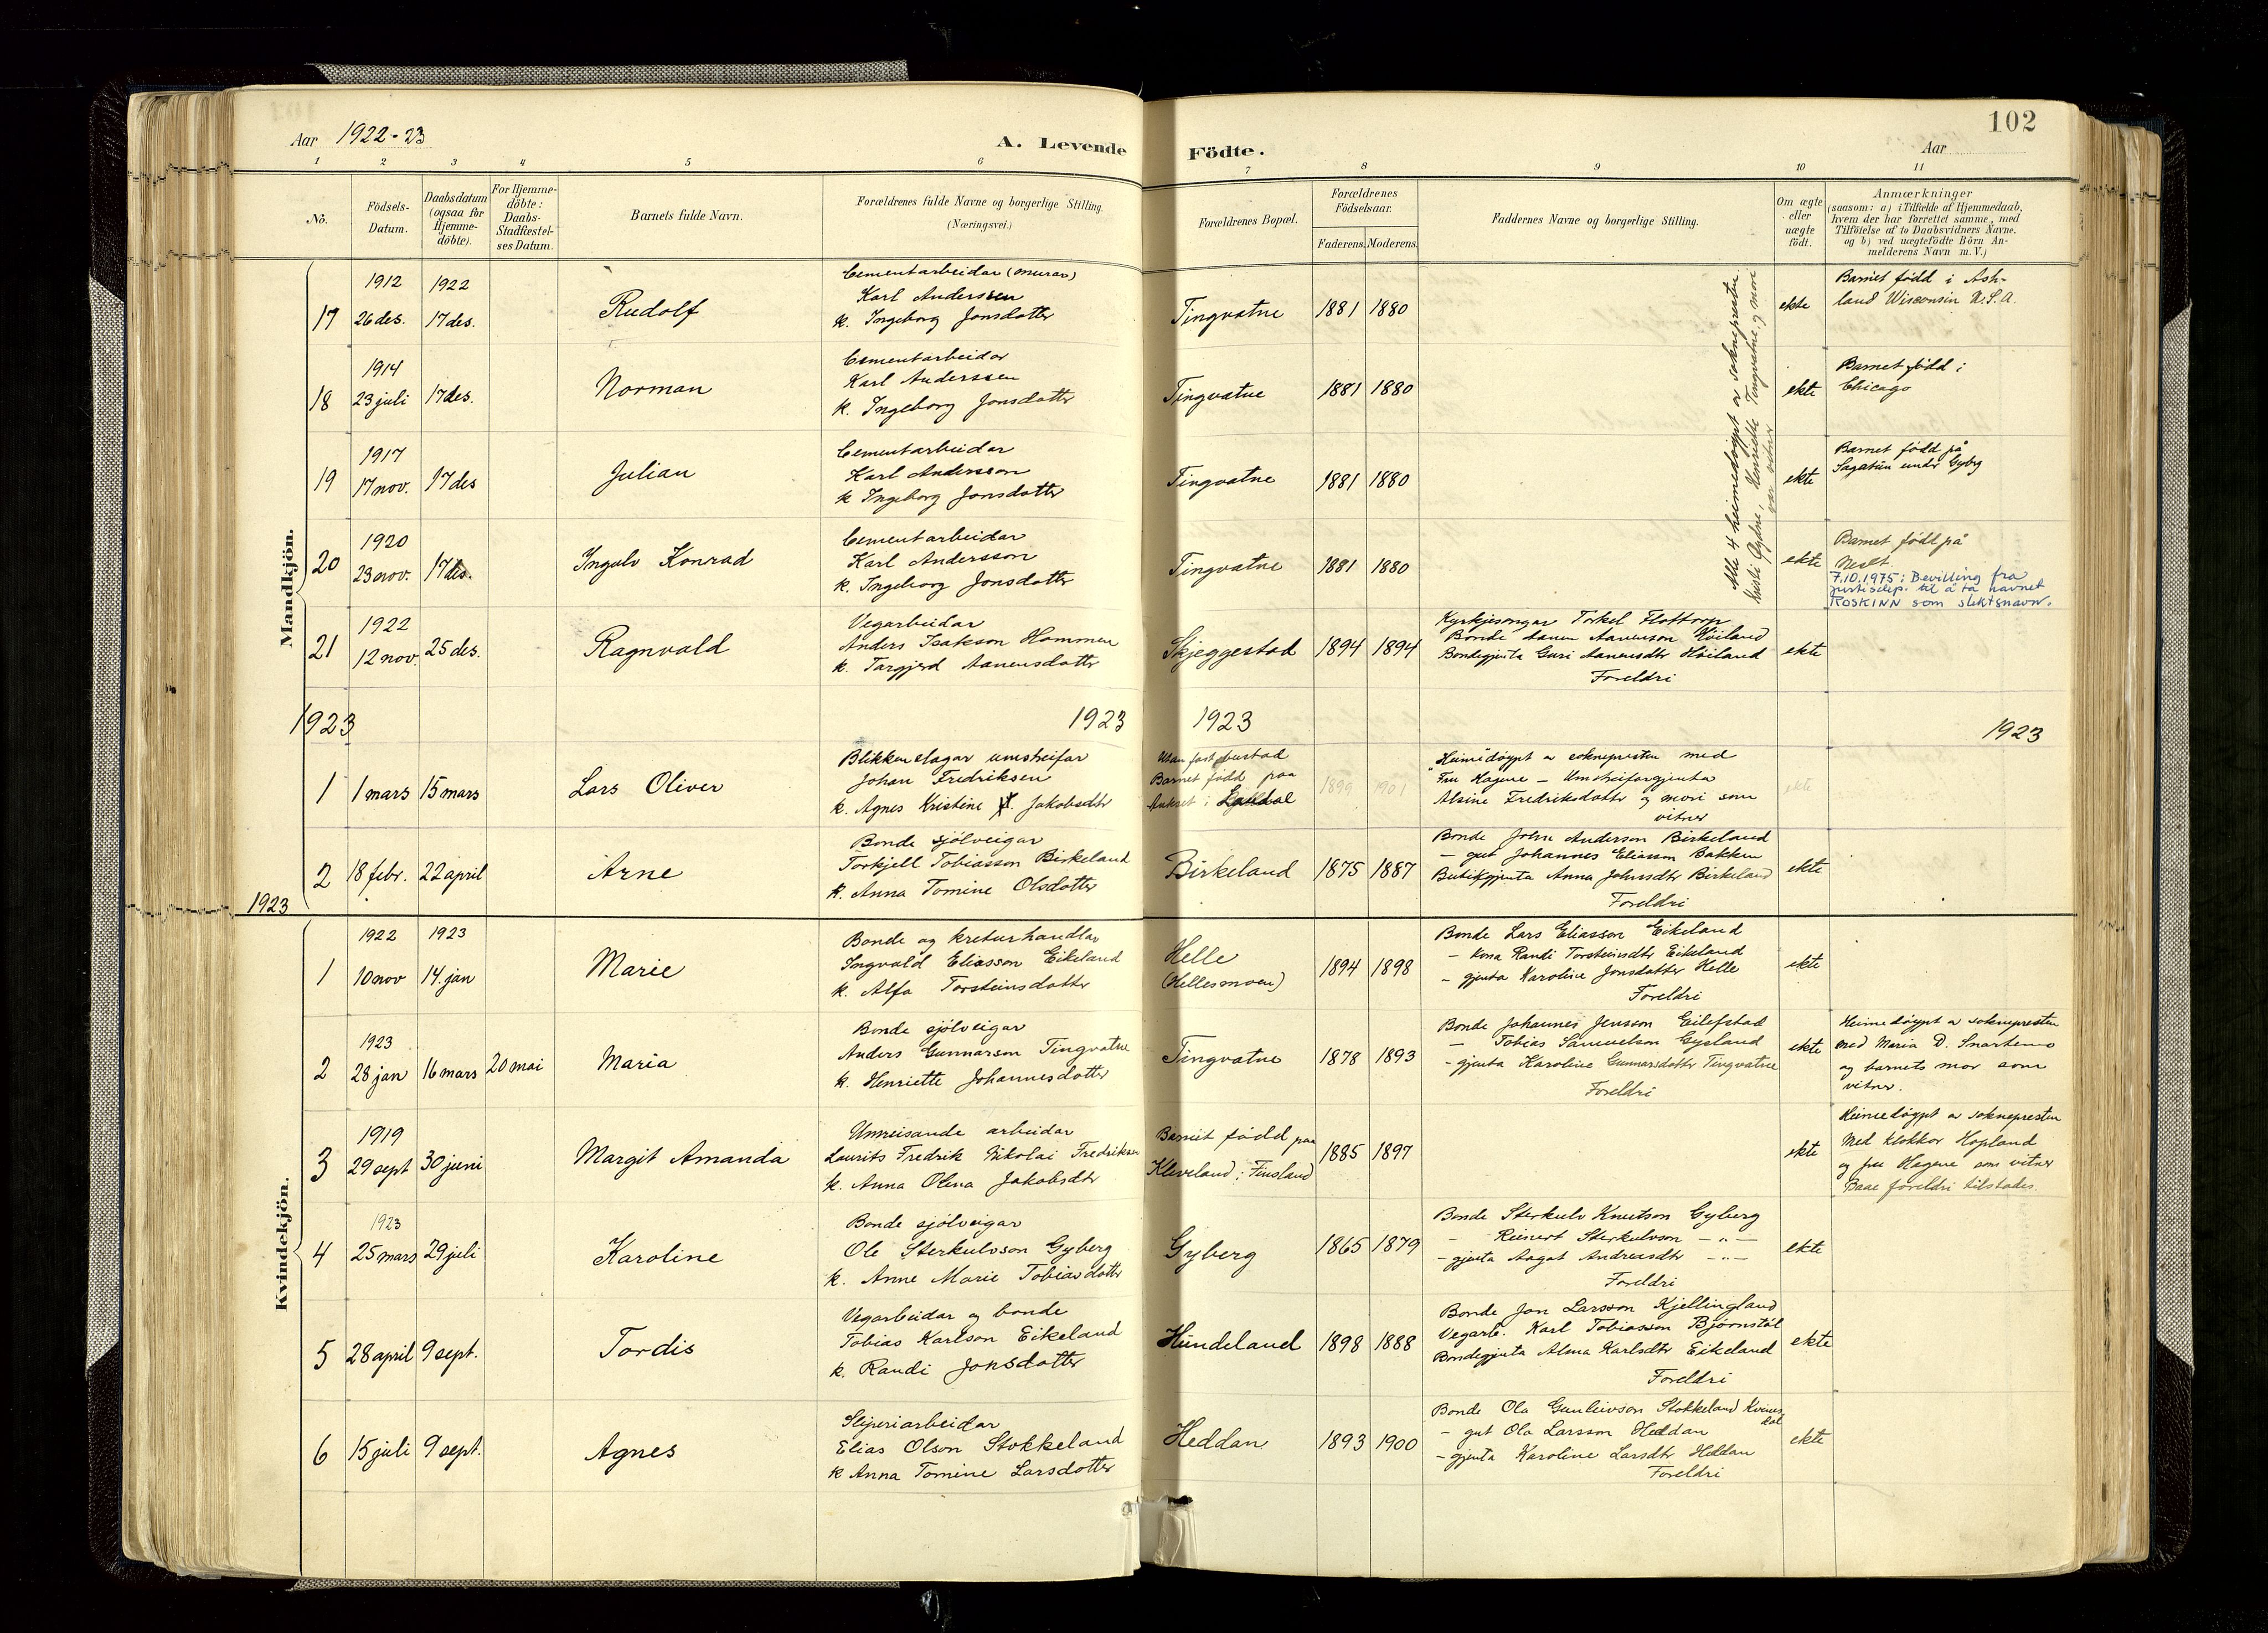 102
Aar 1922-23
A. Levende Födte.
Aar
1 2 3 4 5 6 7 8 9 10 11
No.
Födsels-
Datum.
Daabsdatum
(ogsaa for
Hjemme-
döbte).
For Hjemme-
döbte:
Daabs-
Stadfæstel-
ses Datum.
Barnets fulde Navn.
Forældrenes fulde Navne og borgerlige Stilling.
(Næringsvei.)
Forældrenes Bopæl.
Forældrenes
Födselsaar.
Faderens. Moderens.
Faddernes Navne og borgerlige Stilling.
Om ægte
eller
uægte
födt.
Anmærkninger
(saasom: a) i Tilfælde af Hjemmedaab,
hvem der har forrettet samme, med
Tilföielse af to Daabsvidners Navne,
og b) ved uægtefödte Börn An-
melderens Navn m. V.)
Mandkjön.
17
1912
26 des.
1922
17 des.
Rudolf
Cementarbeidar (murar)
Karl Anderssen
k. Ingeborg Jonsdotter
Tingvatne
1881 1880
ekte
Barnet fødd i Ash-
land Wisconsin U.S.A.
Alle 4 heimedøypt av soknepresten.
Kristi Gydne, Henriette Tingvatne og mori
var vitner
18
1914
23 juli
17 des.
Norman
Cementarbeidar
Karl Anderssen
k. Ingeborg Jonsdotter
Tingvatne
1881 1880
ekte
Barnet fødd i
Chicago
19
1917
17 nov.
17 des
Julian
Cementarbeidar
Karl Andersson
k Ingeborg Jonsdotter
Tingvatne
1881 1880
ekte
Barnet fødd på
Sagatun under Gyberg
20
1920
23 nov.
17 des.
Ingulv Konrad
Cementarbeidar
Karl Andersson
k. Ingeborg Jonsdotter
Tingvatne
1881 1880
ekte
Barnet født på
7.10.1975: Bevilling fra
justisdep. til å ta navnet
ROSKINN som slektsnavn.
21
1922
12 nov.
25 des.
Ragnvald
Vegarbeidar
Anders Isakson Hommen
k. Targjerd Aanensdotter
Skjeggestad
1894 1894
Kyrkjesongar Torkel Flottorp
Bonde Aanen Aanenson Høiland
Bondegjenta Guri Aanensdtr Høiland
Foreldri
ekte
1923 1923 1923 1923
1
1 mars
15 mars
Lars Oliver
Blikkenslagar umstreifar
Johan Fredriksen
k. Agnes Kristine Jakobsdtr
Utan fast bustad
Barnet fødd paa
i Laudal
1899 1901
Heimedøypt av soknepresten med
Fru Hagene – Umstreifargjenta
Alsine Fredriksdotter og mori som
vitner
ekte
2
18 febr.
22 april
Arne
Bonde sjølveigar
Torkjell Tobiasson Birkeland
k. Anna Tomine Olsdotter
Birkeland
1875 1887
Bonde John Anderson Birkeland
– gut Johannes Eliasson Bakken
Butikgjenta Anna Johnsdtr Birkeland
Foreldri
ekte
1923
Kvindekjön.
1
1922
10 nov
1923
14. jan
Marie
Bonde og kreturhandlar
Ingvald Eliasson Eikeland
k. Alfa Torsteinsdotter
Helle
(Hellesmoen)
1894 1898
Bonde Lars Eliasson Eikeland
– kona Randi Torsteinsdtr Eikeland
– gjenta Karoline Jonsdotter Helle
Foreldri
ekte
2
1923
28 jan
16 mars
20 mai
Maria
Bonde sjølveigar
Anders Gunnarson Tingvatne
k. Henriette Johannesdotter
Tingvatne
1878 1893
Bonde Johannes Jensson Eilefstad
– Tobias Samuelson Gysland
– gjenta Karoline Gunnarsdotter Tingvatne
Foreldri
ekte
Heimedøypt av soknepresten
med Maria D. Snartemo
og barnets mor som
vitner.
3
1919
29 sept
30 juni
Margit Amanda
Umreisande arbeidar
Laurits Fredrik Nikolai Fredriksen
k. Anna Olena Jakobsdtr
Barnet fødd paa
Kleveland i Finsland
1885 1897
ekte
Heimedøypt av soknepresten
Med klokkar Hopland
og fru Hagene som vitner
Baae foreldri tilstades.
4
1923
25 mars
29 juli
Karoline
Bonde sjølveigar
Ole Sterkulvson Gyberg
k. Anne Marie Tobiasdotter
Gyberg
1865 1879
Bonde Sterkulv Knutson Gyberg
– Reinert Sterkulvson – " –
– gjenta Aagot Andreasdtr – " –
Foreldri
ekte
5
28 april
9 sept.
Tordis
Vegarbeidar og bonde
Tobias Karlson Eikeland
k. Randi Jonsdotter
Hundeland
1898 1888
Bonde Jon Larsson Kjellingland
Vegarb. Karl Tobiasson Bjørnstøl
Bondegjenta Alma Karlsdtr Eikeland
Foreldri
ekte
6
15 juli
9 sept.
Agnes
Sliperiarbeidar
Elias Olson Stokkeland
k Anna Tomine Larsdotter
Heddan
1893 1900
Bonde Ola Gunleivson Stokkeland Kvines
dal
– gut Ola Larsson Heddan
– gjenta Karoline Larsdtr Heddan
Foreldri
ekte